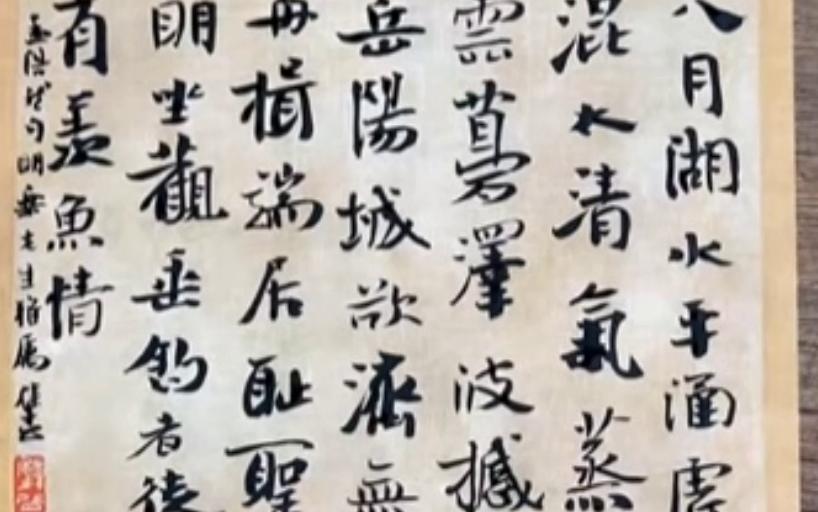 八月湖水平涵虛
混太清氣蒸
雲夢澤波撼
岳陽城欲濟無
舟楫端居耻聖
明坐觀垂釣者徒
有羨魚情
孟浩然句明先生雅屬